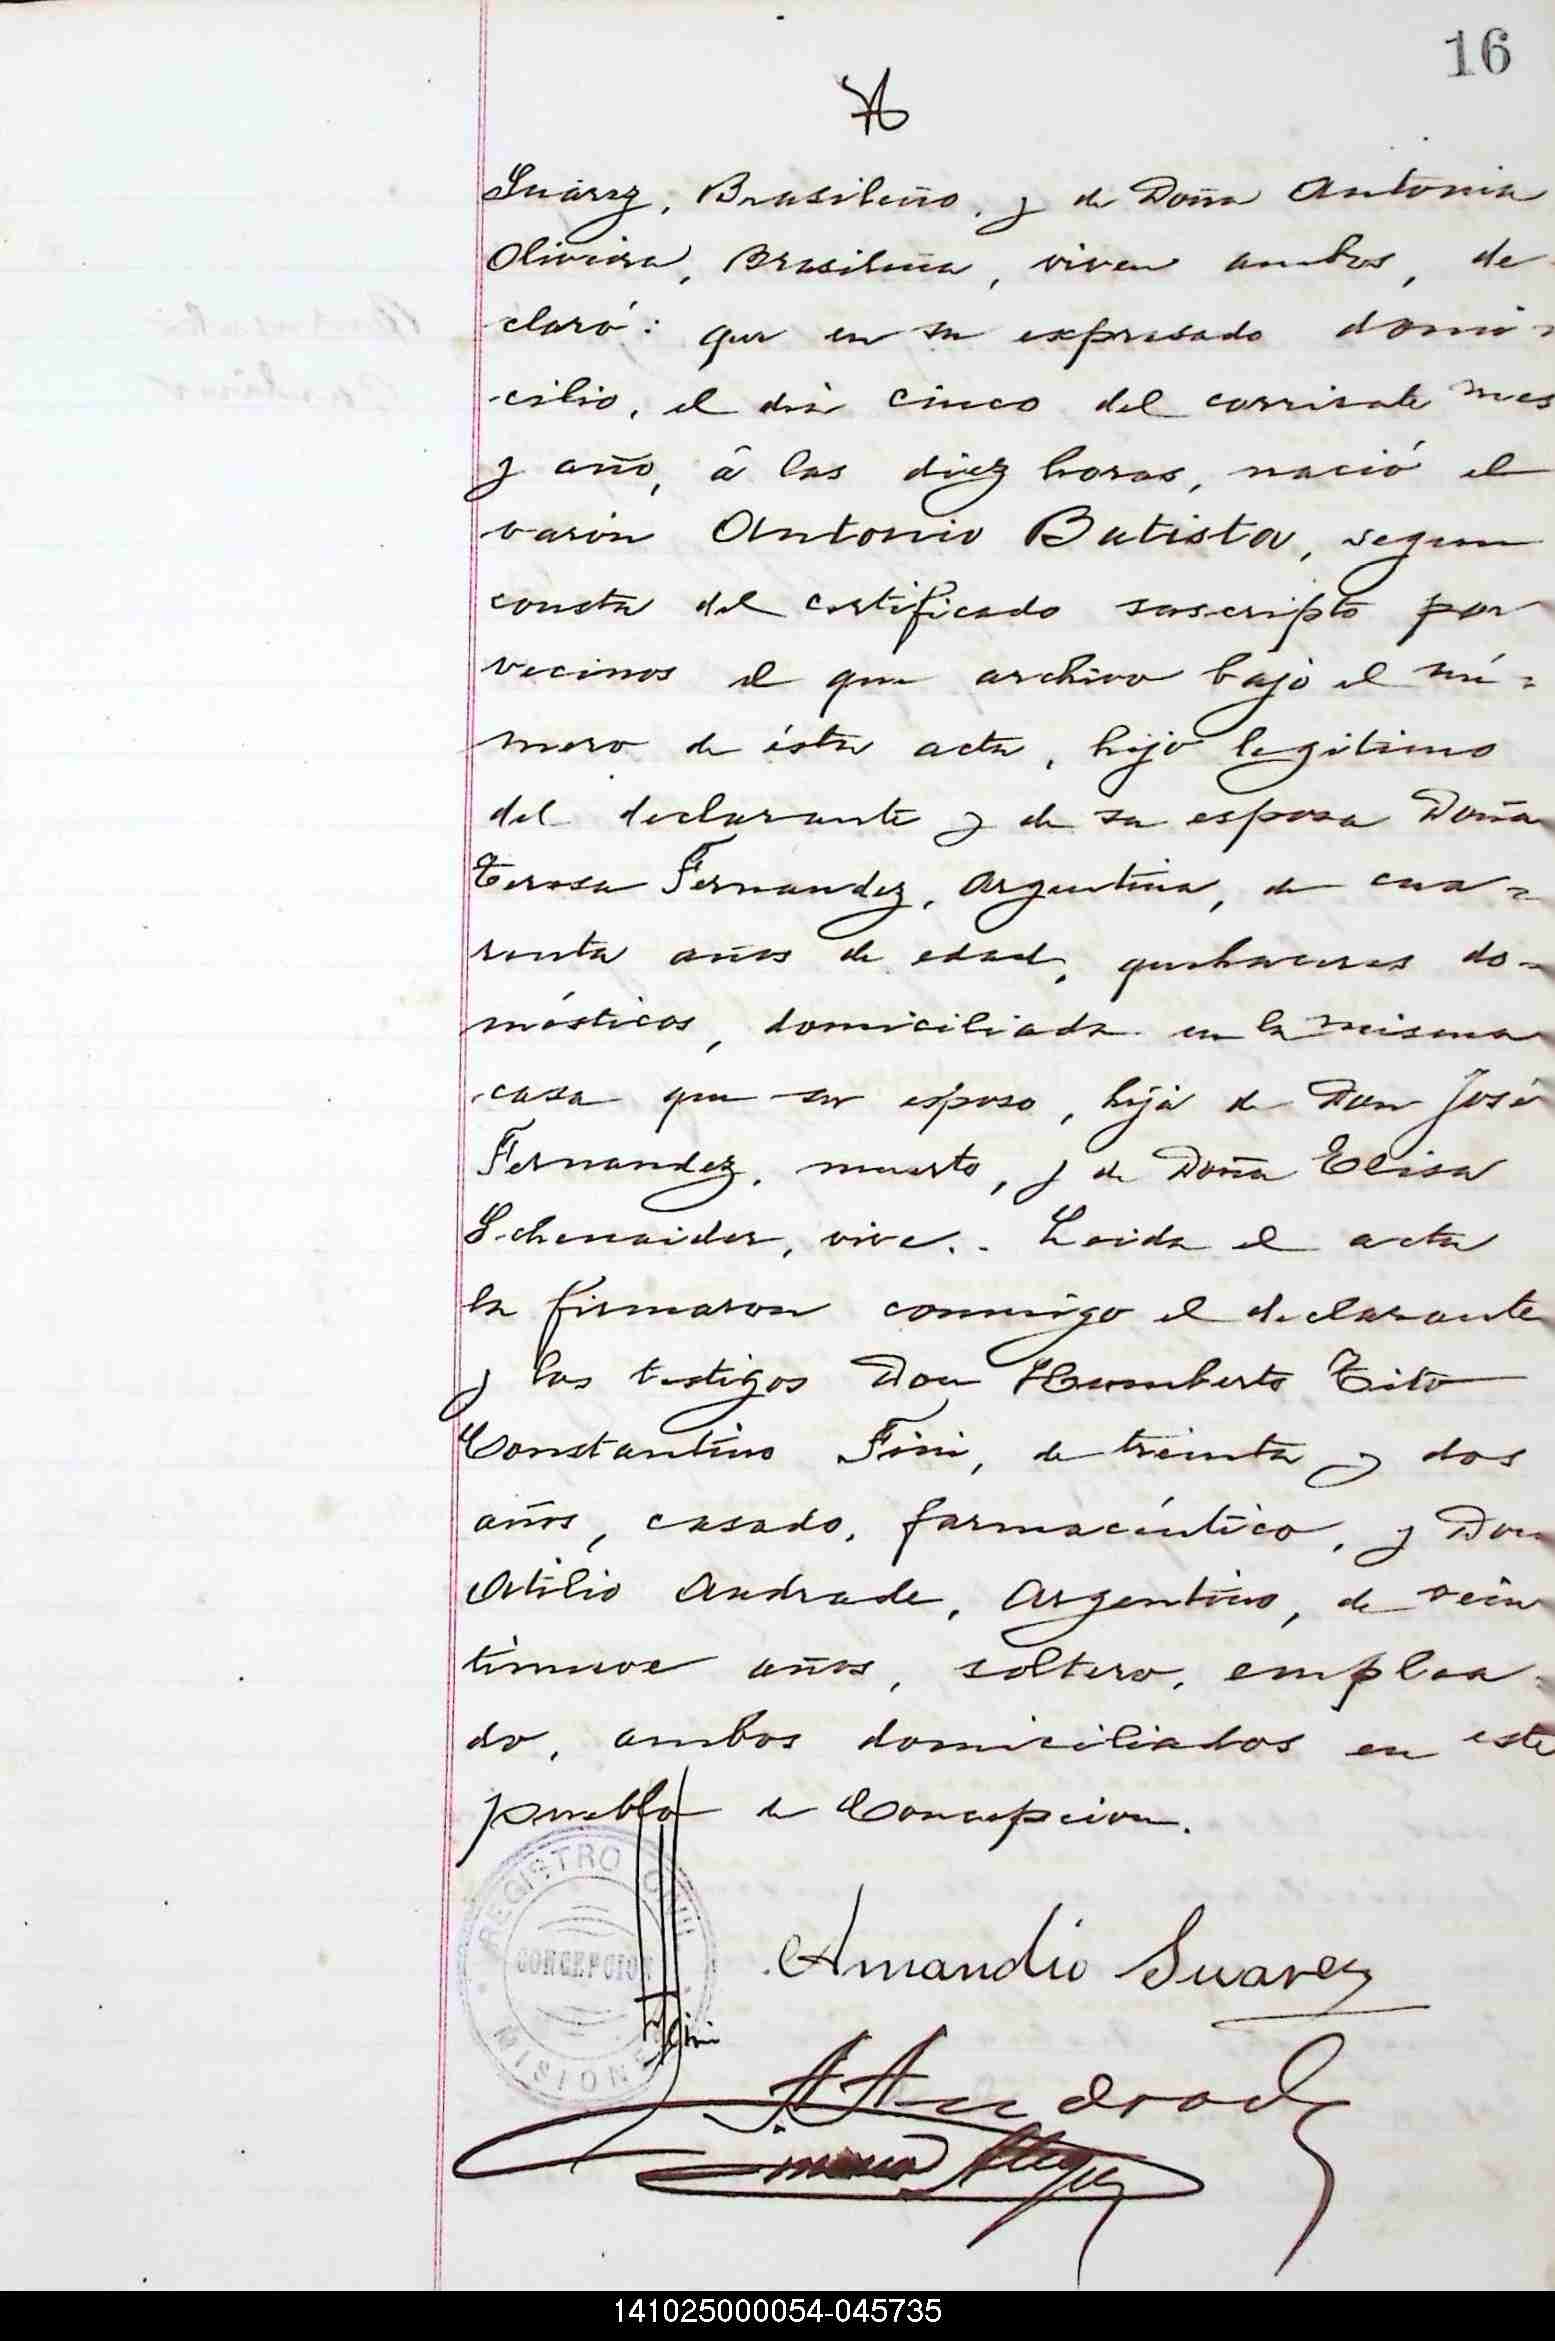 16
Suárez, Brasileño, y de Doña Antonia
Oliveira, Brasileña, viven ambos, de
claró: que en su expresado domi=
cilio, el día cinco del corriente mes
y año, á las diez horas, nació el
varón Antonio Batista, segun
consta del certificado suscripto por
vecinos el que archivo bajo el nú=
mero de ésta acta, hijo legitimo
del declarante y de su esposa Doña
Teresa Fernandez, Argentina, de cua=
renta años de edad, quehaceres do=
mésticos, domiciliada en la misma
casa que su esposo, hija de Don José
Fernandez, muerto, y de Doña Elisa
Schenaider, vive.. Leida el acta
la firmaron conmigo el declarante
y los testigos Don Humberto Tito
Constantino Fini, de treinta y dos
años, casado, farmacéutico, y Don
Atilio Andrade, Argentino, de vein
tinueve años, soltero, emplea=
do, ambos domiciliados en este
pueblo de Concepcion.
REGISTRO CIVIL
CONCEPCION
MISIONES
Amandio Suarez
Fini
A Andrade
141025000054-045735